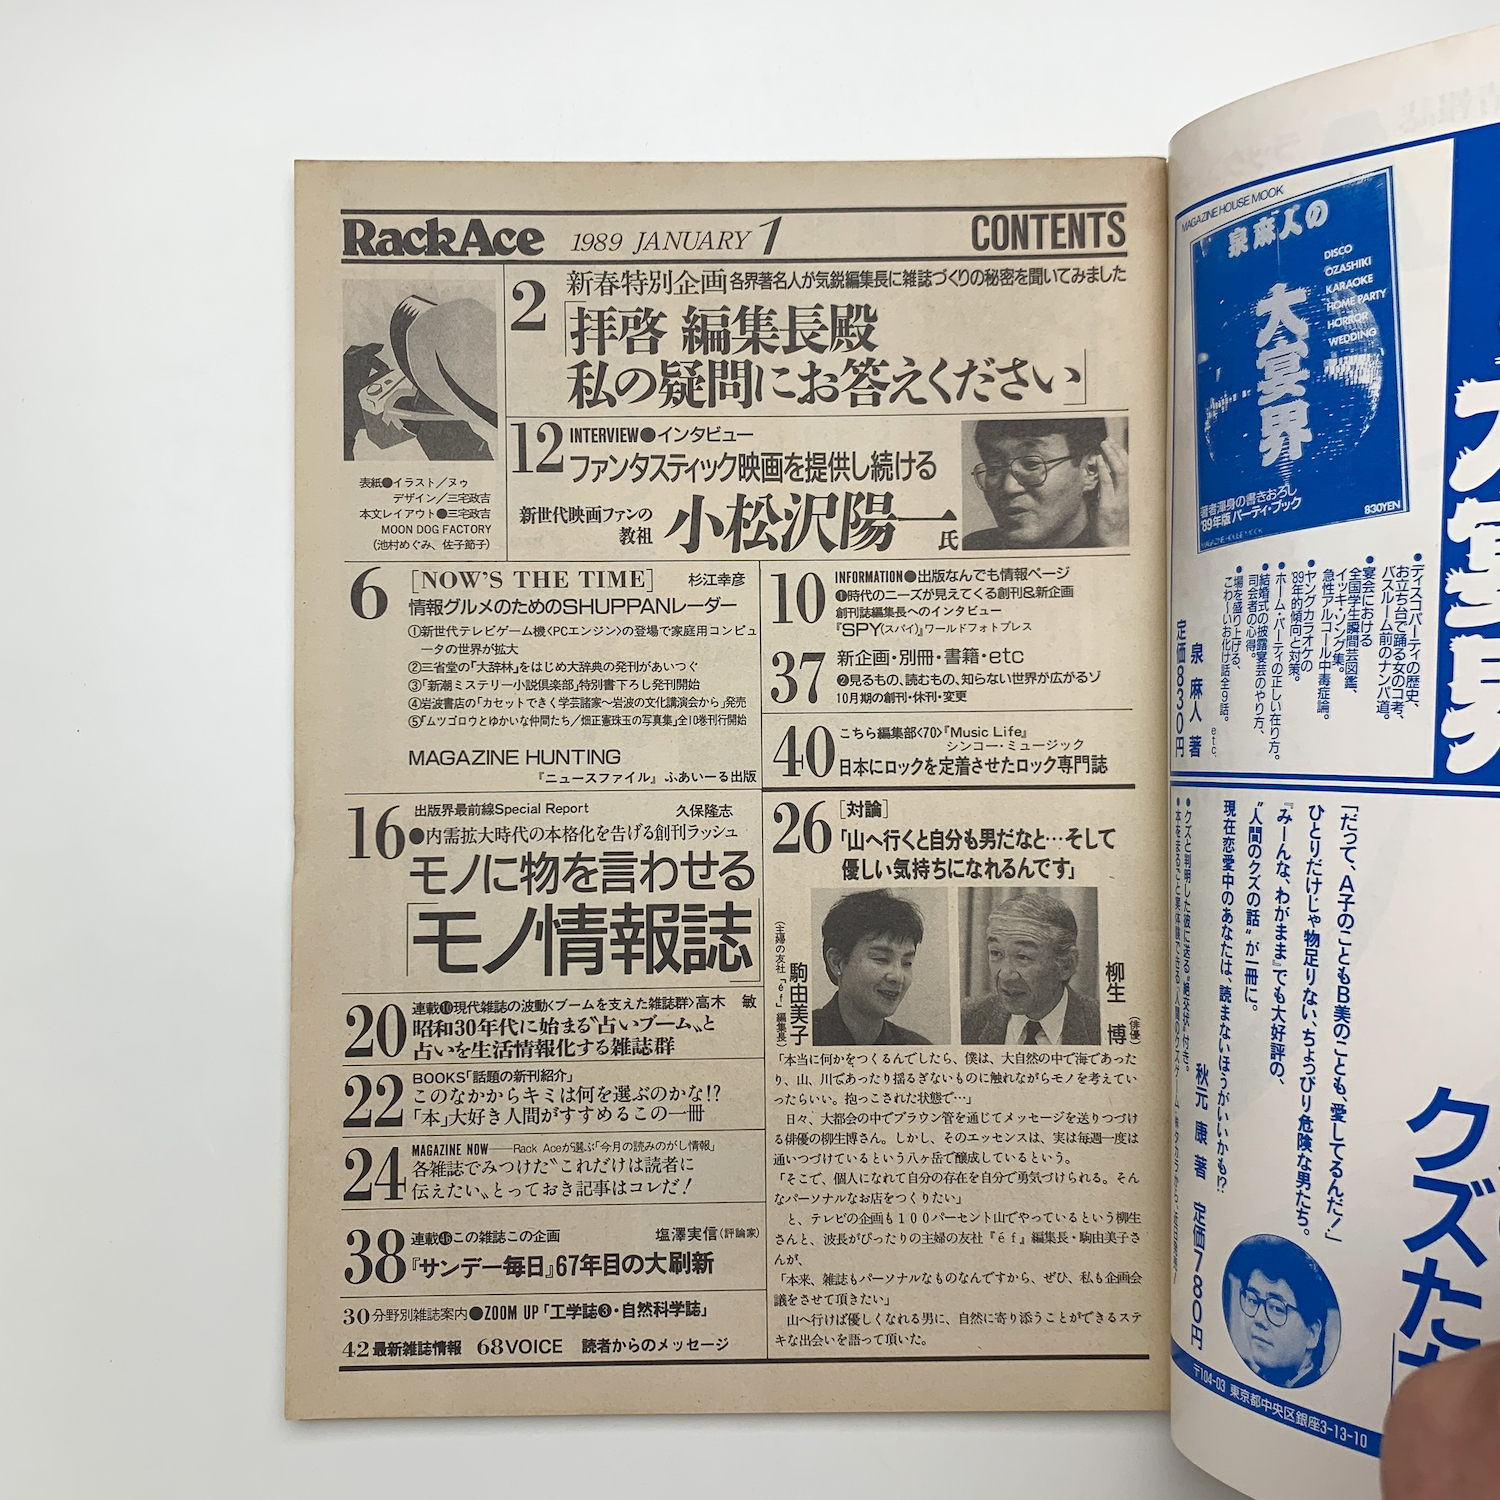 RackAce 1989 JANUARY 1 CONTENTS
表紙●イラスト／ヌゥ
デザイン／三宅政吉
本文レイアウト●三宅政吉
MOON DOG FACTORY
(池村めぐみ、佐子節子)
2 新春特別企画 各界著名人が気鋭編集長に雑誌づくりの秘密を聞いてみました
「拝啓 編集長殿
私の疑問にお答えください」
12 INTERVIEW●インタビュー
ファンタスティック映画を提供し続ける
新世代映画ファンの
教祖 小松沢陽一氏
6 [NOW'S THE TIME] 杉江幸彦
情報グルメのためのSHUPPANレーダー
①新世代テレビゲーム機〈PCエンジン〉の登場で家庭用コンピュ
ータの世界が拡大
②三省堂の「大辞林」をはじめ大辞典の発刊があいつぐ
③「新潮ミステリー小説倶楽部」特別書下ろし発刊開始
④岩波書店の「カセットできく学芸諸家〜岩波の文化講演会から」発売
⑤「ムツゴロウとゆかいな仲間たち／畑正憲珠玉の写真集」全10巻刊行開始
MAGAZINE HUNTING
『ニュースファイル』ふあいーる出版
16 出版界最前線Special Report 久保隆志
●内需拡大時代の本格化を告げる創刊ラッシュ
モノに物を言わせる
「モノ情報誌」
20 連載⑩現代雑誌の波動〈ブームを支えた雑誌群〉高木 敏
昭和30年代に始まる〝占いブーム〟と
占いを生活情報化する雑誌群
22 BOOKS「話題の新刊紹介」
このなかからキミは何を選ぶのかな!?
「本」大好き人間がすすめるこの一冊
24 MAGAZINE NOW──Rack Aceが選ぶ「今月の読みのがし情報」
各雑誌でみつけた〝これだけは読者に
伝えたい〟とっておき記事はコレだ！
38 連載㊻この雑誌この企画 塩澤実信(評論家)
『サンデー毎日』67年目の大刷新
30 分野別雑誌案内●ZOOM UP「工学誌❸・自然科学誌」
42 最新雑誌情報 68 VOICE 読者からのメッセージ
10 INFORMATION●出版なんでも情報ページ
❶時代のニーズが見えてくる創刊&新企画
創刊誌編集長へのインタビュー
『SPY(スパイ)』ワールドフォトプレス
37 新企画・別冊・書籍・etc
❷見るもの、読むもの、知らない世界が広がるゾ
10月期の創刊・休刊・変更
40 こちら編集部〈70〉『Music Life』
シンコー・ミュージック
日本にロックを定着させたロック専門誌
26 [対論]
「山へ行くと自分も男だなと…そして
優しい気持ちになれるんです」
駒由美子
(主婦の友社「éf」編集長)
柳生 博
(俳優)
「本当に何かをつくるんでしたら、僕は、大自然の中で海であった
り、山、川であったり揺るぎないものに触れながらモノを考えてい
ったらいい。抱っこされた状態で…」
日々、大都会の中でブラウン管を通じてメッセージを送りつづけ
る俳優の柳生博さん。しかし、そのエッセンスは、実は毎週一度は
通いつづけているという八ヶ岳で醸成しているという。
「そこで、個人になれて自分の存在を自分で勇気づけられる。そん
なパーソナルなお店をつくりたい」
と、テレビの企画も１００パーセント山でやっているという柳生
さんと、波長がぴったりの主婦の友社『éf』編集長・駒由美子さ
んが、
「本来、雑誌もパーソナルなものなんですから、ぜひ、私も企画会
議をさせて頂きたい」
山へ行けば優しくなれる男に、自然に寄り添うことができるステ
キな出会いを語って頂いた。
MAGAZINE HOUSE MOOK
泉麻人の
大宴界
DISCO
OZASHIKI
KARAOKE
HOME PARTY
HORROR
WEDDING
著者渾身の書きおろし
'89年版パーティ・ブック
830YEN
MAGAZINE HOUSE MOOK
●ディスコパーティの歴史、
お立ち台で踊る女のコ考、
バスルーム前のナンパ道。
●宴会における
全国学生瞬間芸図鑑、
イッキ・ソング集。
急性アルコール中毒症論。
●ヤングカラオケの
'89年的傾向と対策。
●ホーム・パーティの正しい在り方。
●結婚式の披露宴芸のやり方、
司会者の心得。
●場を盛り上げる、
こわ〜いお化け話全9話。
etc.
泉 麻人 著
定価830円
「だって、A子のこともB美のことも、愛してるんだ！」
ひとりだけじゃ物足りない、ちょっぴり危険な男たち。
『みーんな、わがまま』でも大好評の、
〝人間のクズの話〟が一冊に。
現在恋愛中のあなたは、読まないほうがいいかも!?
秋元 康 著 定価780円
クズた
〒104-03 東京都中央区銀座3-13-10